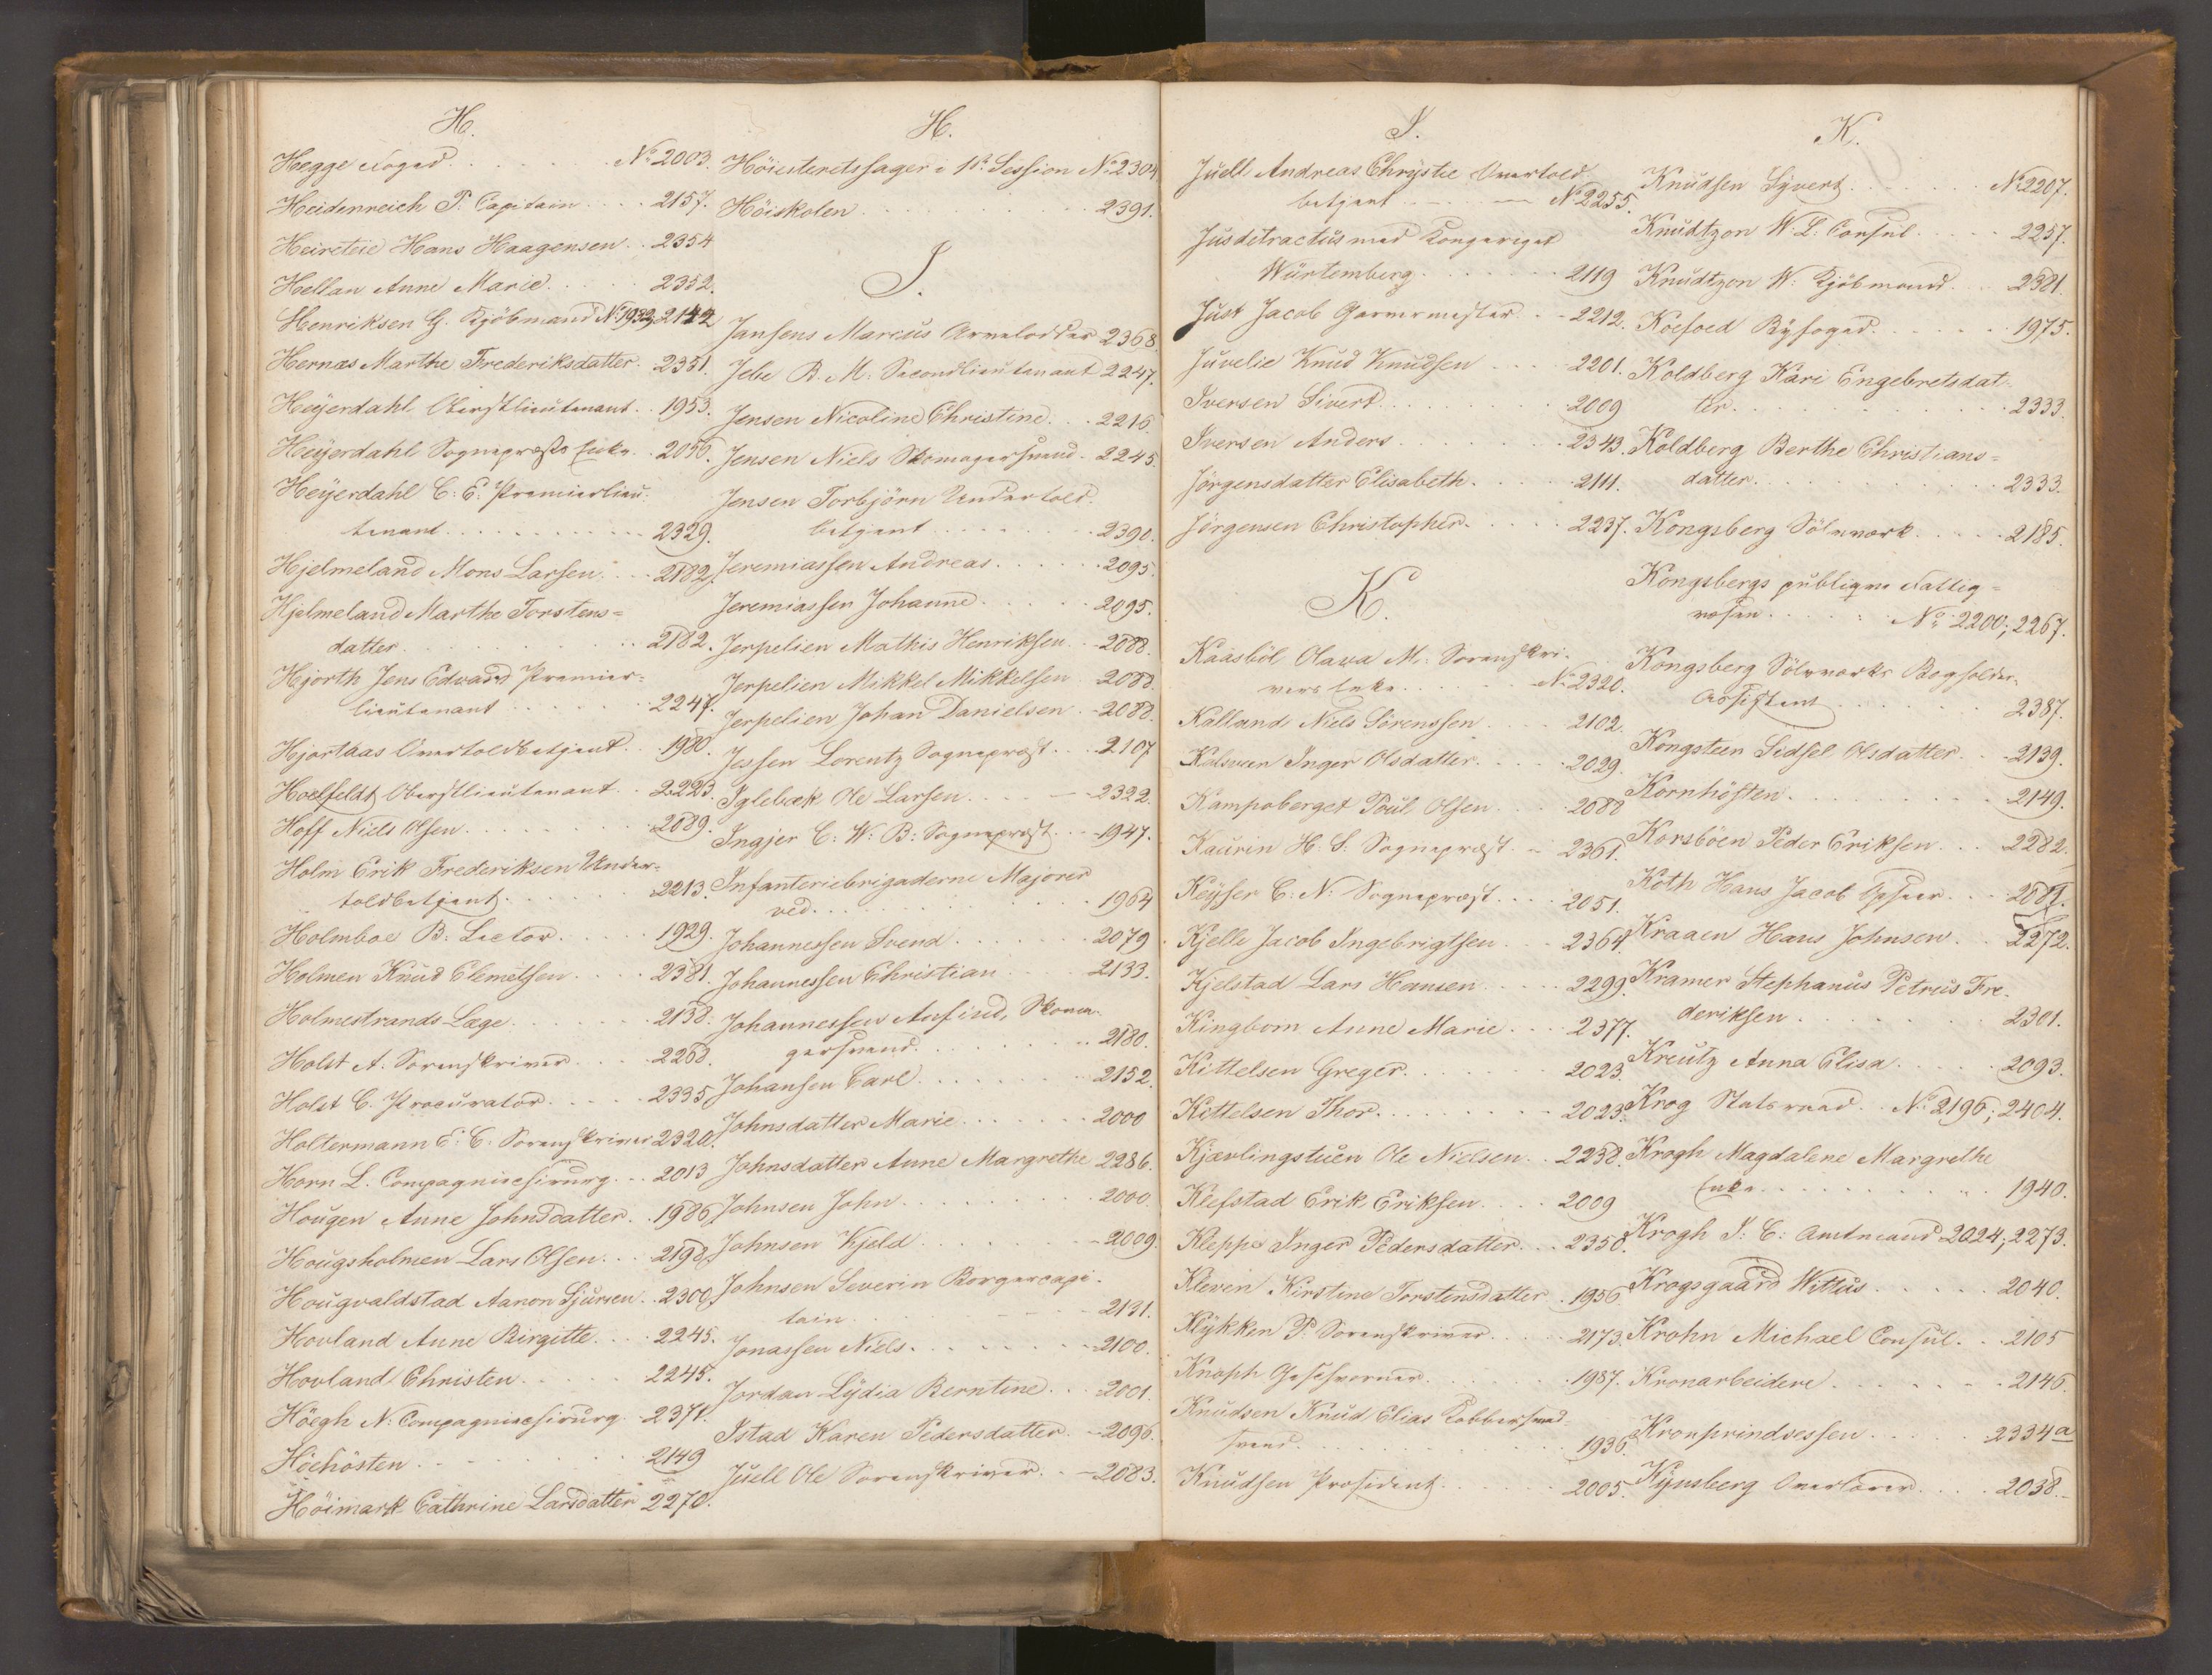 H.
Hegge Foged . . . . . . No 2003.
Heidenreich P. Capitain . . . . 2157.
Heireteie Hans Haagensen . . 2354
Hellan Anne Marie . . . . 2352.
Henriksen G. Kjöbmand No 1932, 2144
Hernæs Marthe Frederiksdatter . 2351.
Heÿerdahl Oberstlieutenant . . 1953.
Heÿerdahl Sognepræsts Enke . . 2056.
Heÿerdahl C: E: Premierlieu-
tenant . . . . . . . . . . 2329.
Hjelmeland Mons Larsen . . . 2182.
Hjelmeland Marthe Torstens=
datter . . . . . . . . . . 2182.
Hjorth Jens Edvard Premier=
lieutenant . . . . . . 2247.
Hjorthaas Overtoldbetjent . . 1980.
Hoelfeldt Oberstlieutenant . . 2223.
Hoff Niels Olsen . . . . . . . 2089.
Holm Erik Frederiksen Under-
toldbetjent . . . . . . 2213.
Holmboe B. Lector . . . . . 1929.
Holmen Knud Clemetsen . . . . 2381.
Holmestrands Læge . . . . . . 2138.
Holst A. Sorenskriver . . . . 2268.
Holst C. Procurator . . . . . 2335
Holtermann E. C. Sorenskriver 2320.
Horn L. Compagniechirurg . . . 2013
Hougen Anne Johnsdatter . . 1986
Hougsholmen Lars Olsen . . . 2198.
Hougvaldstad Aanon Sjursen . . 2300.
Hovland Anne Birgitte . . . . 2245.
Hovland Christen . . . . . 2245.
Höegh N. Compagniechirurg . . 2371.
Höehösten . . . . . . . . 2149
Höimark Cathrine Larsdatter 2270.
H.
Höiesteretssager i 1st. Session No 2304
Höiskolen . . . . . . . . . 2391.
J.
Jansens Marcus Arvelodder 2368.
Jelse B. M. Secondlieutenant 2247.
Jensen Nicoline Christine . . . 2216.
Jensen Niels Skomagersvend . 2245.
Jensen Torbjörn Undertold-
betjent . . . . . . . . 2390.
Jeremiassen Andreas . . . . . . 2095.
Jeremiassen Johanne . . . . . 2095.
Jerpelien Mathis Henriksen . . 2088.
Jerpelien Mikkel Mikkelsen . 2088.
Jerpelien Johan Danielsen . . 2088.
Jessen Lorentz Sognepræst . . . 2107
Iglebæk Ole Larsen . . . . . 2322.
Ingjer C: W: B: Sognepræst . . . 1947.
Infanteriebrigaderne Majorer
ved . . . . . . . . . . . . . 1964
Johannessen Svend . . . . . . 2079
Johannessen Christian . . . . 2133.
Johannessen Anfind, Skoma-
gersvend . . . . . . . . . 2180.
Johansen Carl . . . . . . . 2152.
Johnsdatter Marie . . . . . . 2000
Johnsdatter Anne Margrethe 2286.
Johnsen John . . . . . . . . 2000.
Johnsen Kjeld . . . . . . . 2009.
Johnsen Severin Borgercapi-
tain . . . . . . . . . . 2131.
Jonassen Niels . . . . . . . 2100.
Jordan Lÿdia Berntine . . . 2001.
Istad Karen Pedersdatter . . 2096.
Juell Ole Sorenskriver . . . 2083.
J.
Juell Andreas Chrÿstie Overtold-
betjent . . . . No 2255.
Jusdetractus med Kongeriget
Würtemberg . . . . . . 2119
Just Jacob Garvermester . . . 2212.
Juvelie Knud Knudsen . . . . 2201.
Iversen Sivert . . . . . . . . 2009
Iversen Anders . . . . . . . 2343.
Jörgensdatter Elisabeth . . . . 2111.
Jörgensen Christopher . . . . . 2237.
K.
Kaasböl Olava M. Sorenskri-
vers Enke . . . . . No 2320.
Kalland Niels Sörenssen . . . . 2102.
Kalsveen Inger Olsdatter . . . . 2029.
Kampaberget Poul Olsen . . . . 2088
Kauren H. S. Sognepræst . . 2361.
Keÿser C. N. Sognepræst . . . . 2051.
Kjelle Jacob Ingebrigtsen . . . 2364
Kjelstad Lars Hansen . . . . . 2299.
Kingbom Anne Marie . . . . 2377.
Kittelsen Greger . . . . . . 2023.
Kittelsen Thor . . . . . . . . 2023.
Kjærlingstuen Ole Nielsen . . 2238.
Klefstad Erik Eriksen . . . . 2009
Kleppe Inger Pedersdatter . . . 2350.
Kleven Kirstine Torstensdatter . 1956
Klÿkken P. Sorenskriver . . . . 2173.
Knoph Geschworner . . . . . . 1987.
Knudsen Knud Elias Kobbersmed-
svend . . . . . . . . . . . 1936.
Knudsen Præsident . . . . . . 2005.
K.
Knudsen Sÿvert . . . . . . No 2207.
Knudtzon W. L. Consul . . . . . 2257.
Knudtzon W. Kjöbmand . . . 2381.
Koefoed Bÿfoged . . . . . . . 1975.
Koldberg Kari Engebretsdat-
ter . . . . . . . . . . . . . 2333.
Koldberg Berthe Christians=
datter . . . . . . . . . . 2333.
Kongsberg Sölvværk . . . . . 2185.
Kongsbergs publiqve Fattig=
væsen . . . . . No 2200; 2267.
Kongsberg Sölvværks Bogholder-
Assistent . . . . . . . 2387.
Kongsteen Sidsel Olsdatter . . . 2139.
Kornhösten . . . . . . . . . 2149.
Korsböen Peder Eriksen . . . 2282.
Koth Hans Jacob . . . 2081.
Kraaen Hans Johnsen . . . 2272.
Kramer Stephanus Petrus Fre-
deriksen . . . . . . . 2301.
Kreutz Anna Elisa . . . . . 2093.
Krog Statsraad . . No 2196; 2404.
Krogh Magdalene Margrethe
Enke . . . . . . . . . . 1940.
Krogh J: C: Amtmand 2024; 2273.
Krogsgaard Wittus . . . . . . 2040.
Krohn Michael Consul . . . 2105
Kronarbeidere . . . . . . . 2146.
Kronprindsessen . . . . . 2334a
Kÿnsberg Overlærer . . . . 2038.